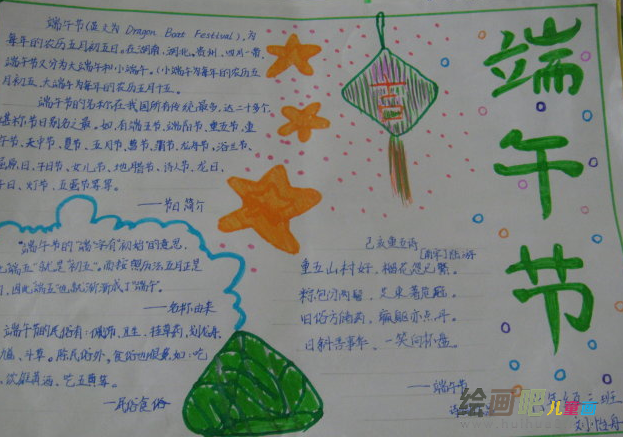 端午节
端午节(英文为 Dragon Boat Festival),为
每年的农历五月初五日。在湖南,湖北,贵州,四川一带,
端午节又分为大端午和小端午。(小端午为每年的农历五
月初五,大端午为每年的农历五月十五。
端午节的名称在我国所有传统最多,达二十多个,
堪称节日别名之最。如,有端五节、端阳节、重五节、重
午节、天中节、夏节、五月节、
龙舟节、浴兰节、
日、午日节、女儿节、地腊节、诗人节、龙日、
午日、灯节、五蛋节等等。
——节日简介
"端午节"的"端"字有"初始"的意思,
"端五"就是"初五"。而按照历法五月正是
月,因此"端五"也就渐渐成了"端午"。
——名称由来
端午节的民俗有:
挂草药,划龙舟,
斗草。除民俗外,食俗也很重,如:吃
饮雄黄酒、吃五毒等
——民俗食俗
[南宋]陆游
重五山村好,榴花忽已繁。
粽包分两髻,艾束著危冠。
旧俗方储药,羸躯亦点丹。
日斜吾事毕,一笑向杯盘。
——端午节
班
绘画吧
儿童画